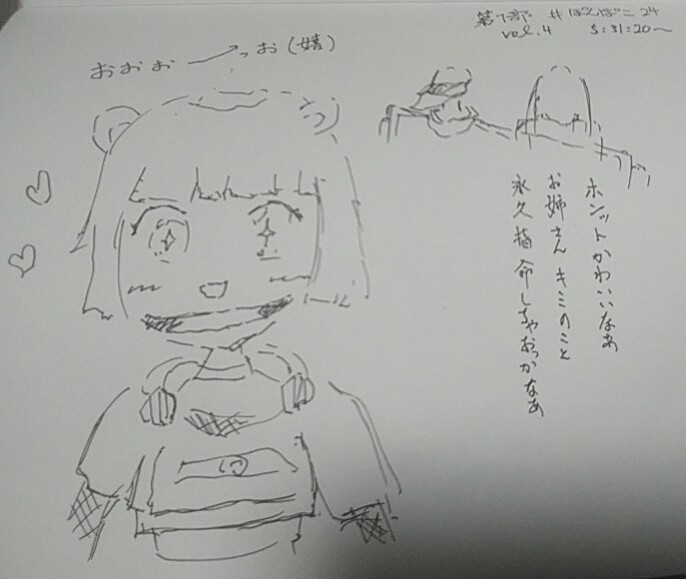 第7部 #ぽんぽこ24
vol.4 5:31:20〜
おぉぉ→っお(嬉)
ホンットかわいいなあ
お姉さんキミのこと
永久指命しちゃおっかなあ